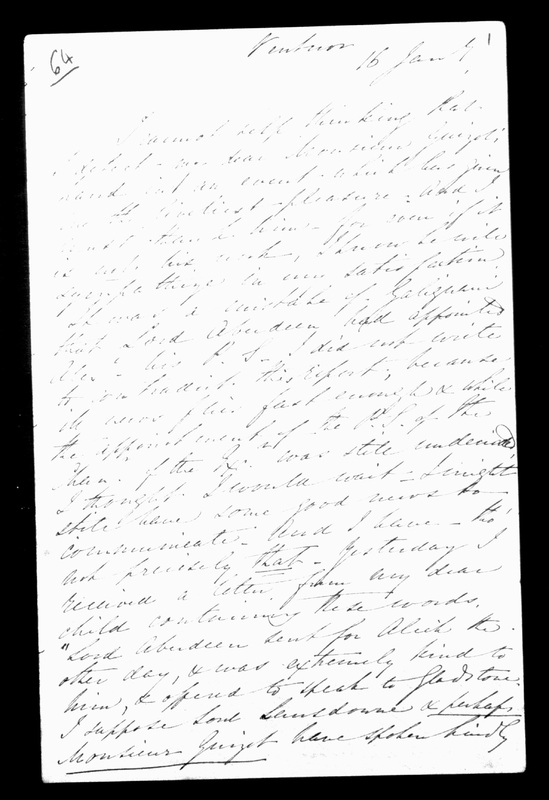 64
Ventnor
16 Jany
I cannot help thinking that
I detect - my dear Monsieur Guizot's
hand in an event which has given
me the liveliest pleasure - And I
must thank him - for even if it
is not his work, I know he will
sympathize in my satisfaction
It was a mistake of Galignani
that Lord Aberdeen had appointed
Alex - his P.S. I did not write
to contradict this report, because
ill news flies fast enough & while
the appointment of the P.S. of the
Chan. of the Ex. was still undecided,
I thought I would wait - I might
still have some good news to
communicate - And I have - tho'
not precisely that - Yesterday I
received a letter from my dear
child containing these words.
"Lord Aberdeen sent for Alick the
other day, & was extremely kind to
him, & offered to speak to Gladstone.
I suppose Lord Lansdowne & perhaps
Monsieur Guizot have spoken kindly